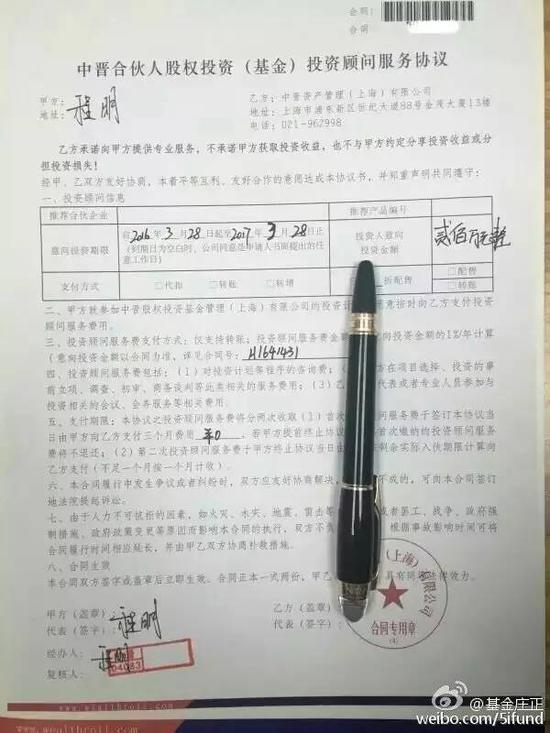 合期:
合同
中晋合伙人股权投资（基金）投资顾问服务协议
甲方: 程明
地址:
乙方: 中晋资产管理（上海）有限公司
地址: 上海市浦东新区世纪大道88号金茂大厦13楼
电话: 021-962998
乙方承诺向甲方提供专业服务，不承诺甲方获取投资收益，也不与甲方约定分享投资收益或分
担投资损失！
经甲、乙双方友好协商，本着平等互利、友好合作的意图达成本协议书，并郑重声明共同遵守：
一、投资顾问信息
推荐合伙企业 推荐产品编号
意向投资期限
自2016年3月28日起至2017年3月28日止
(到期日为空白时，公司同意是申请人书面提出的任
意工作日)
投资人意向
投资金额
贰佰万元整
支付方式 □代扣 □转账 □转增 折配售 □配售
□转账
二、甲方就参加中晋股权投资基金管理（上海）有限公司的投资计 愿意按时向乙方支付投资
顾问服务费用。
三、投资顾问服务费支付方式：仅支持转账；投资顾问服务费金额 向投资金额的1%/年计算
（意向投资金额以合同为准，详见合同号: H1641431
四、投资顾问服务费包括：（1）对投资计划等程序的咨询费；（2 方在项目选择、投资的事
前立项、调查、初审、商务谈判等此类相关的服务费用；（3）乙 代表或者专业人员参加与
投资相关的会议、会务服务等相关费用。
五、支付期限：本协议之投资顾问服务费将分两次收取（1）首次 顾问服务费于签订本协议当
日由甲方向乙方支付三个月费用 ¥0 ，若甲方提前终止协议 首次缴纳的投资顾问服务
费将不退还；（2）第二次投资顾问服务费于甲方终止协议当日由 剩余实际入伙期限计算向
乙方支付（不足一个月按一个月计收）。
六、本合同履行中发生争议或者纠纷时，双方应友好协商解决， 不成的，可向本合同签订
地法院提起诉讼。
七、由于人力不可抗拒的因素，如火灾、水灾、地震、雷击等 或者罢工、战争、政府强
制措施、政府政策变更等原因而影响本合同的执行，双方不负 根据事故影响时间可将
合同履行时间相应延长，并由甲乙双方协商补救措施。
八、合同生效
本合同双方签字或盖章后立即生效。合同正本一式两份，甲乙 具有同等法律效力。
甲方（盖章）
代表（签字）: 程明
乙方（盖章）
代表（签字）:
（上海）有限公司
合同专用章
(4)
经办人: 程明
复核人:
04083
www.wealthroll.com
@基金庄正
weibo.com/5ifund